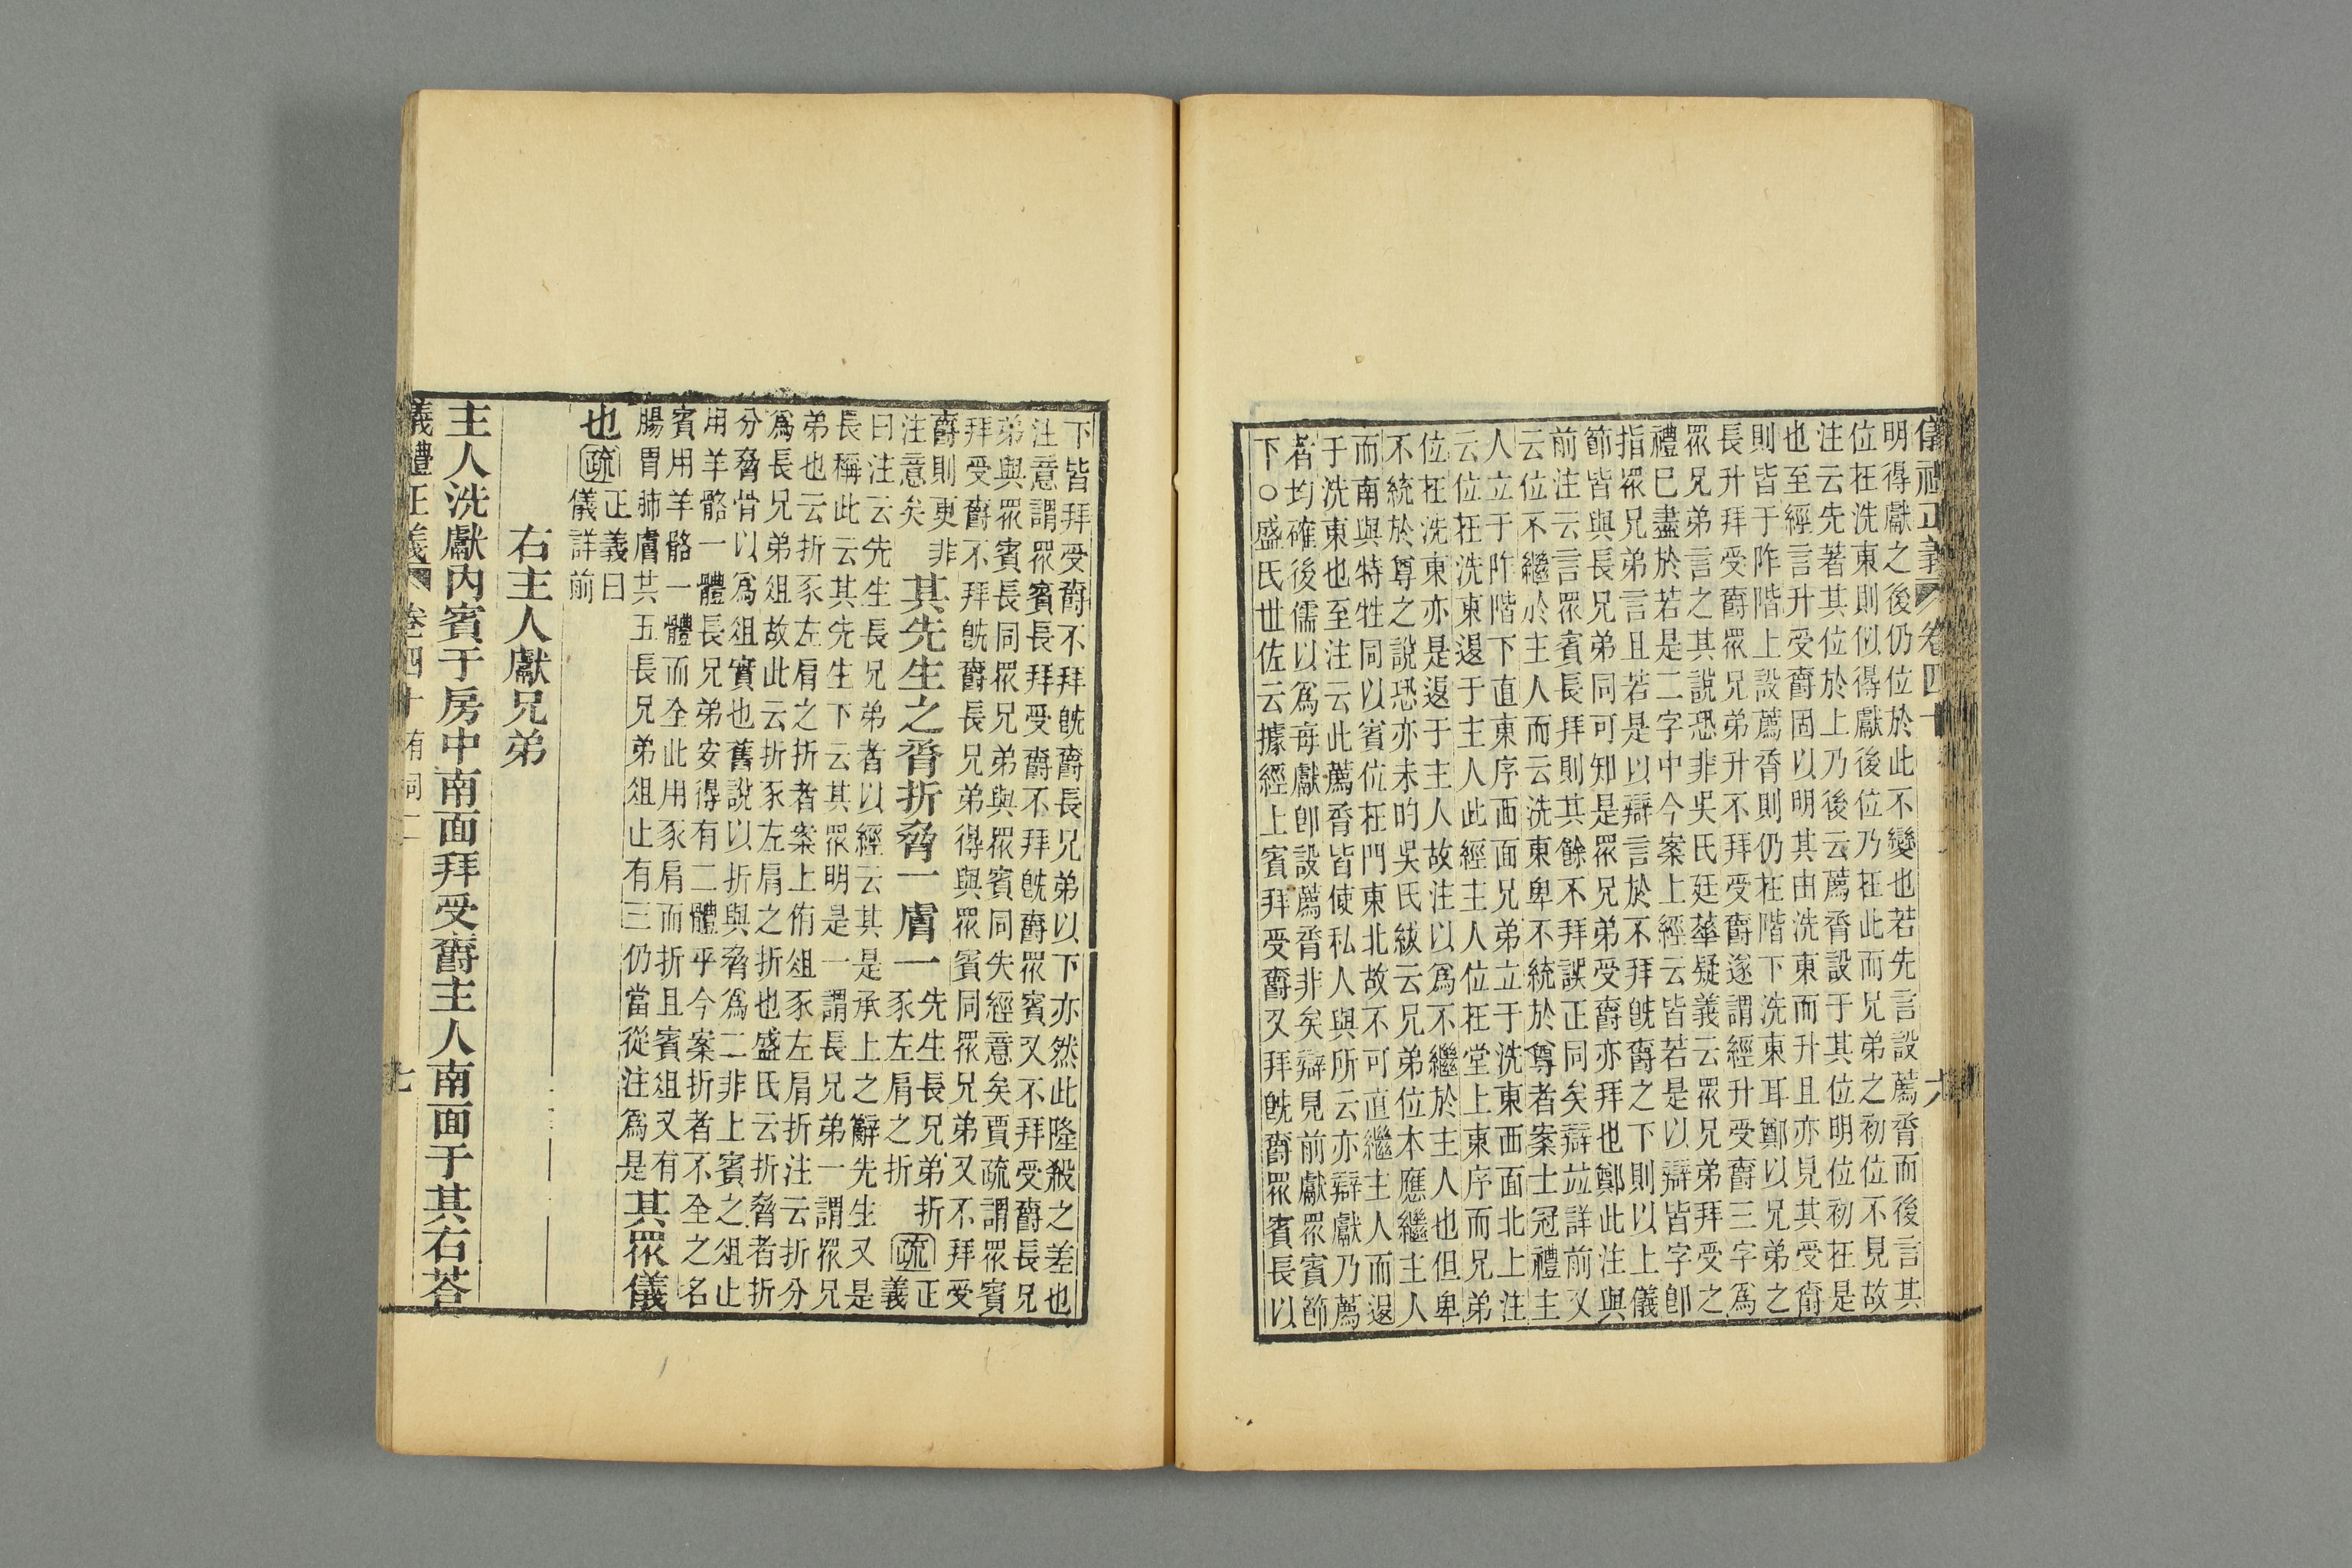 儀禮正義 卷四十 六
明得獻之後仍位於此不變也若先言設薦脀而後言其
位在洗東則似得獻後位乃在此而兄弟之初位不見故
注云先著其位於上乃後云薦脀設于其位明位初在是
也至經言升受爵固以明其由洗東而升且亦見其受爵
則皆于阼階上設薦脀則仍在階下洗東耳鄭以兄弟之
長升拜受爵眾兄弟升不拜受爵遂謂經升受爵三字為
眾兄弟言之其說恐非吳氏廷華疑義云眾兄弟拜受之
禮巳盡於若是二字中今案上經云皆若是以辯皆字卽
指眾兄弟言且若是以辯言於不拜旣爵之下則以上儀
節皆與長兄弟同可知是眾兄弟受爵亦拜也鄭此注與
前注云言眾賓長拜則其餘不拜誤正同矣辯竝詳前又
云位不繼於主人而云洗東卑不統於尊者案士冠禮主
人立于阼階下直東序西面兄弟立于洗東西面北上注
云位在洗東退于主人此經主人位在堂上東序而兄弟
位在洗東亦是退于主人故注以為不繼於主人也但卑
不統於尊之說恐亦未旳吳氏紱云兄弟位本應繼主人
而南與特牲同以賓位在門東北故不可直繼主人而退
于洗東也至注云此薦脀皆使私人與所云亦辯獻乃薦
若均確後儒以為每獻卽設薦脀非矣辯見前獻眾賓節
下○盛氏世佐云據經上賓拜受爵又拜旣爵眾賓長以
下皆拜受爵不拜旣爵長兄弟以下亦然此隆殺之差也
注意謂眾賓長拜受爵不拜旣爵眾賓又不拜受爵長兄
弟與眾賓長同眾兄弟與眾賓同失經意矣賈疏謂眾賓
拜受爵不拜旣爵長兄弟得與眾賓同眾兄弟又不拜受
爵則更非
注意矣
其先生之脀折脅一膚一
先生長兄弟折
豕左肩之折
疏
正
義
曰注云先生長兄弟者以經云其是承上之辭先生又是
長稱此云其先生下云其眾明是一謂長兄弟一謂眾兄
弟也云折豕左肩之折者案上侑俎豕左肩折注云折分
為長兄弟俎故此云折豕左肩之折也盛氏云折脅者折
分脅骨以為俎實也舊說以折與脅為二非上賓之俎止
用羊骼一體長兄弟安得有二體乎今案折者不全之名
賓用羊骼一體而全此用豕肩而折且賓俎又有
腸胃肺膚共五長兄弟俎止有三仍當從注為是
其眾儀
也
疏
正義曰
儀詳前
右主人獻兄弟
主人洗獻內賓于房中南面拜受爵主人南面于其右荅
儀禮正義 卷四十 有司二 七